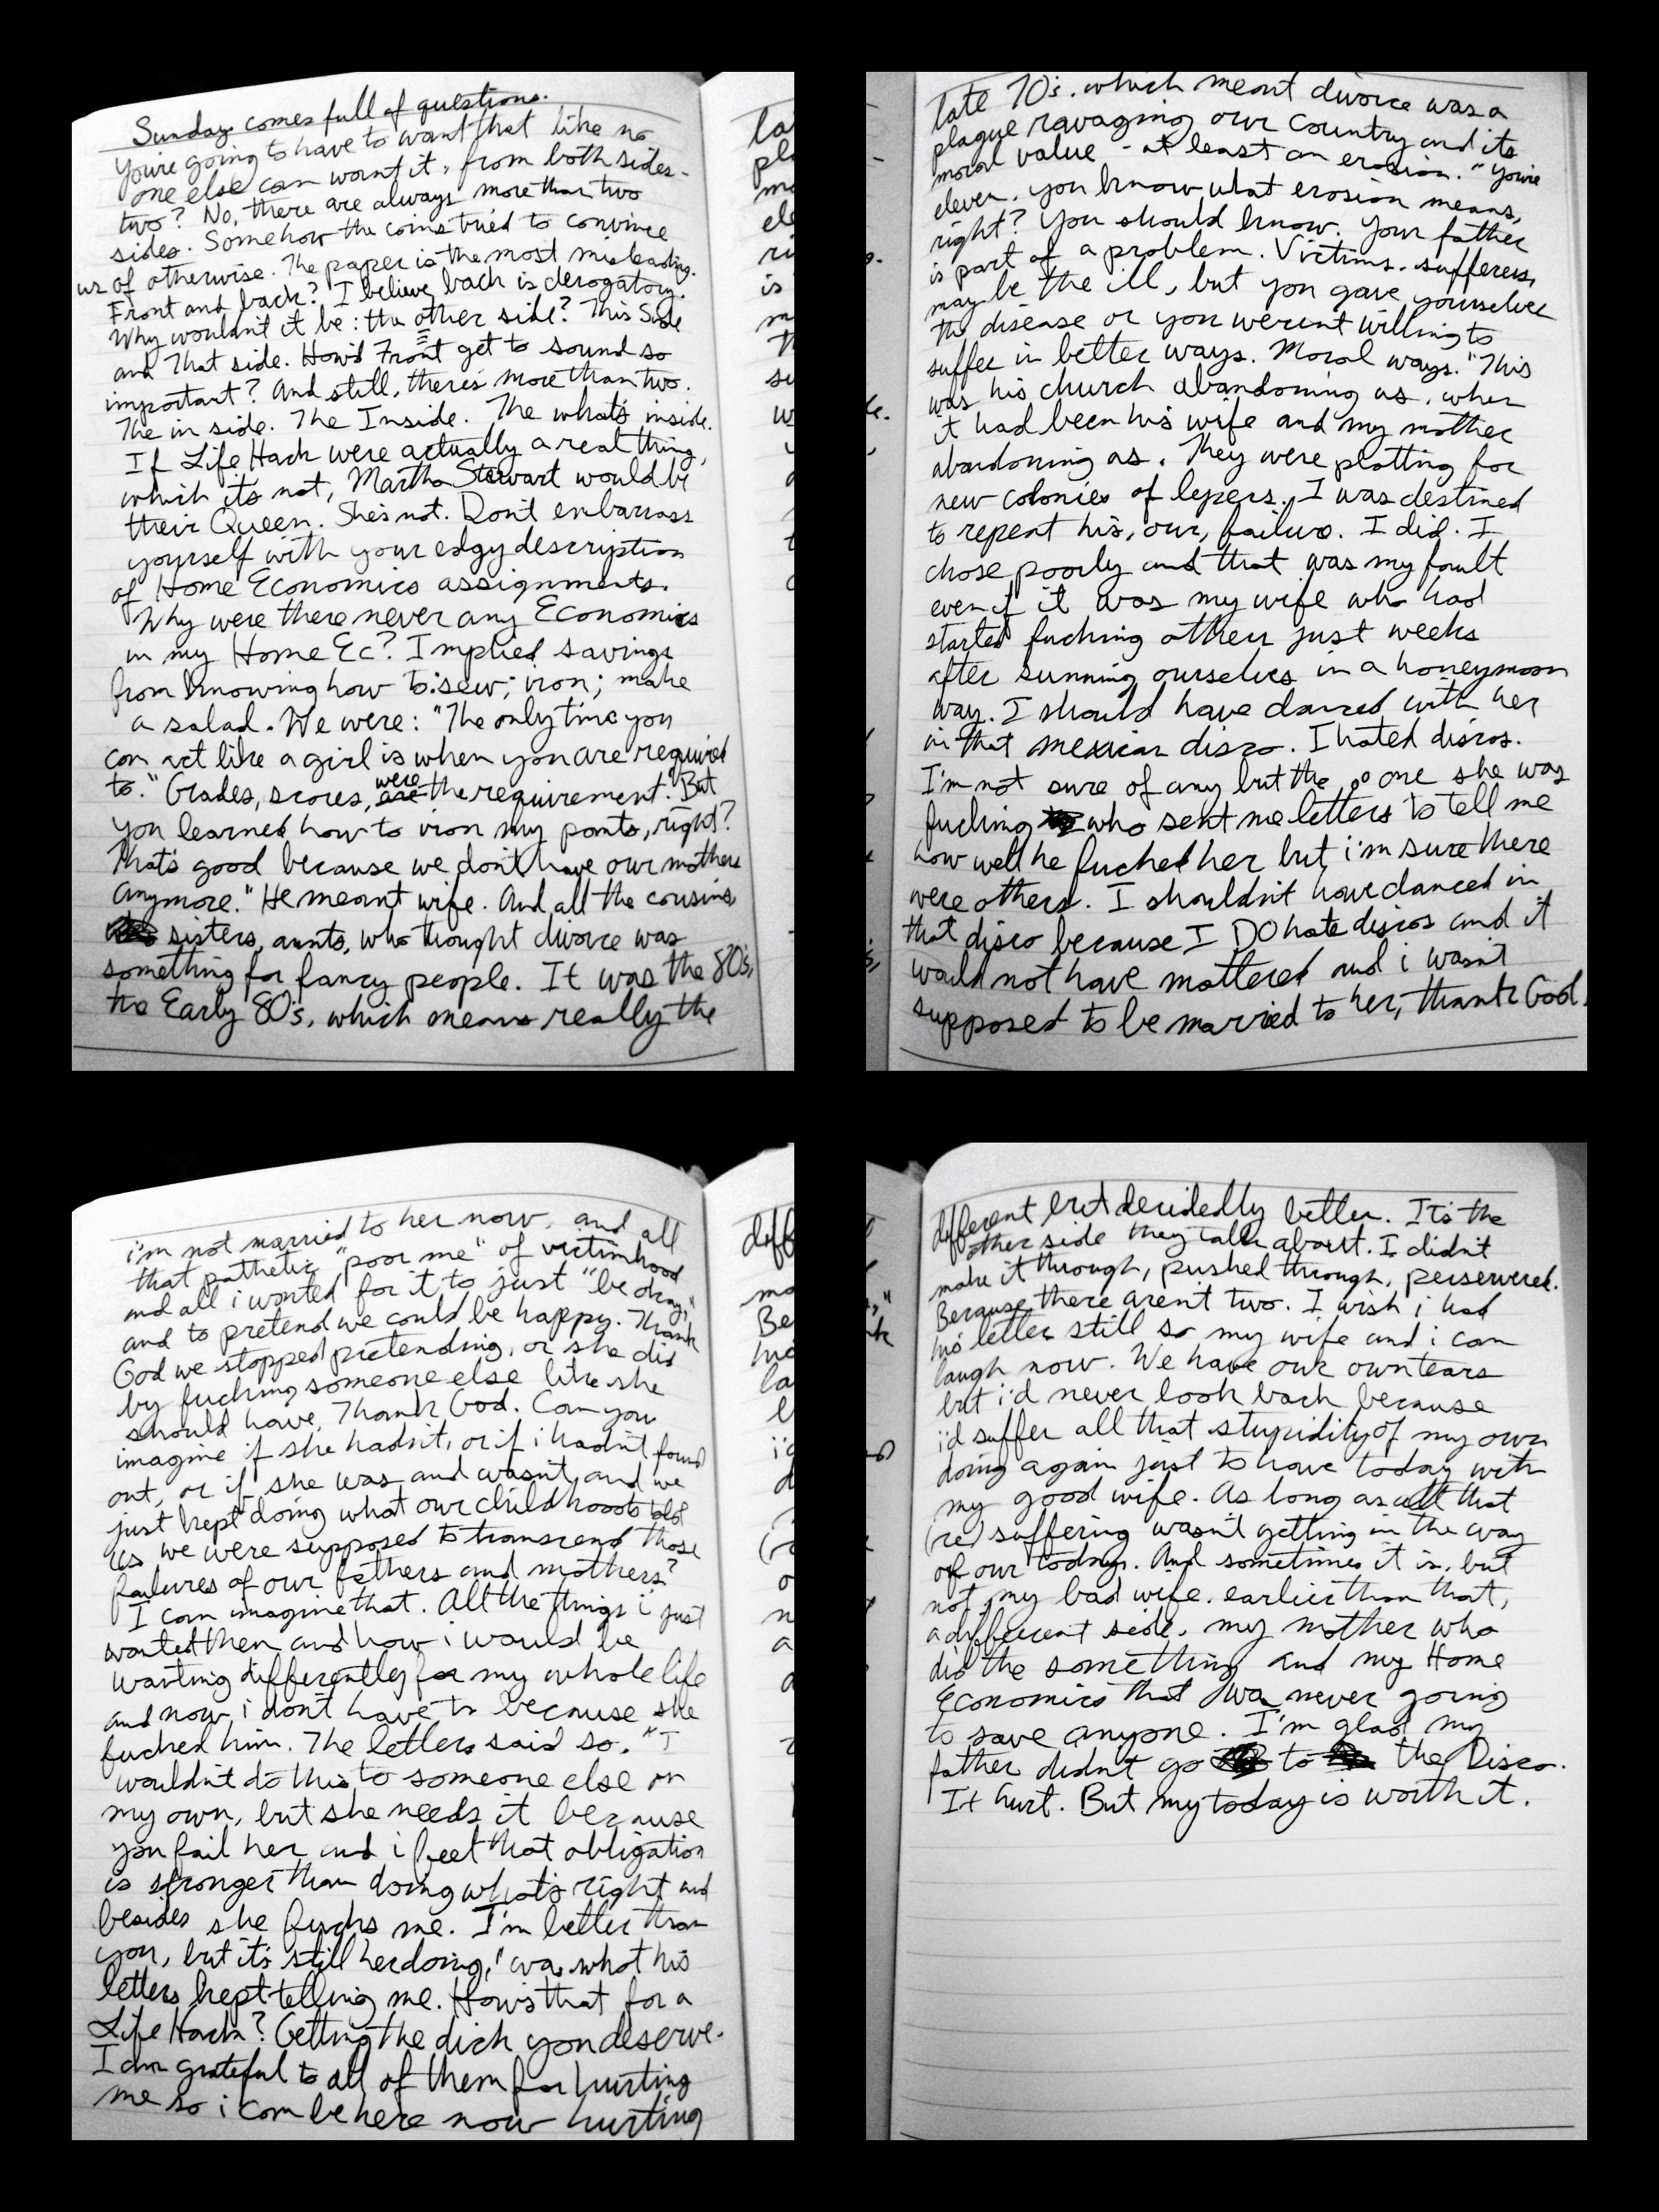 Sunday comes full of questions.
You're going to have to want that like no
one else can want it, from both sides-
two? No, there are always more than two
sides. Somehow the coins tried to convince
us of otherwise. The paper is the most misleading.
Front and back? I believe back is derogatory.
Why wouldn't it be: the other side? This Side
and That side. How'd Front get to sound so
important? And still, there's more than two.
The in side. The Inside. The what's inside.
If Life Hack were actually a real thing,
which it's not, Martha Stewart would be
their Queen. She's not. Don't embarrass
yourself with your edgy description
of Home Economics assignments.
Why were there never any Economics
in my Home Ec? Implied savings
from knowing how to: sew; iron; make
a salad. We were: "The only time you
can act like a girl is when you are required
to." Grades, scores, were the requirement. "But
you learned how to iron my pants, right?
That's good because we don't have our mothers
anymore." He meant wife. And all the cousins,
sisters, aunts, who thought divorce was
something for fancy people. It was the 80's,
the Early 80's, which means really the
late 70's. which meant divorce was a
plague ravaging our country and its
moral value - at least an erosion. "You're
clever, you know what erosion means,
right? You should know. Your father
is part of a problem. Victims, sufferers,
may be the ill, but you gave yourselves
the disease or you weren't willing to
suffer in better ways. Moral ways." This
was his church abandoning us, when
it had been his wife and my mother
abandoning us. They were plotting for
new colonies of lepers. I was destined
to repeat his, our, failure. I did. I
chose poorly and that was my fault
even if it was my wife who had
started fucking others just weeks
after sunning ourselves in a honeymoon
way. I should have danced with her
in that mexican disco. I hated discos.
I'm not sure of any but the one she was
fucking who sent me letters to tell me
how well he fucked her but i'm sure there
were others. I shouldn't have danced in
that disco because I DO hate discos and it
would not have mattered and i wasn't
supposed to be married to her, thank God.
i'm not married to her now, and all
that pathetic "poor me" of victimhood
and all i wanted for it to just "be okay,"
and to pretend we could be happy. Thank
God we stopped pretending, or she did
by fucking someone else like she
should have. Thank God. Can you
imagine if she hadn't, or if i hadn't found
out, or if she was and wasn't and we
just kept doing what our childhoods told
us we were supposed to transcend those
failures of our fathers and mothers?
I can imagine that. All the things i just
wanted then and how i would be
wanting differently for my whole life
and now i don't have to because she
fucked him. The letters said so. "I
wouldn't do this to someone else on
my own, but she needs it because
you fail her and i feel that obligation
is stronger than doing what's right and
besides she fucks me. I'm better than
you, but it's still her doing," was what his
letters kept telling me. How's that for a
Life Hack? Getting the dick you deserve.
I am grateful to all of them for hurting
me so i can be here now hurting
different but decidedly better. It's the
other side they talk about. I didn't
make it through, pushed through, persevered.
Because there aren't two. I wish i had
his letter still so my wife and i can
laugh now. We have our own tears
but i'd never look back because
i'd suffer all that stupidity of my own
doing again just to have today with
my good wife. As long as all that
(re) suffering wasn't getting in the way
of our todays. And sometimes it is, but
not my bad wife. earlier than that,
a different side, my mother who
did the something and my Home
Economics that was never going
to save anyone. I'm glad my
father didn't go to the Disco.
It hurt. But my today is worth it.